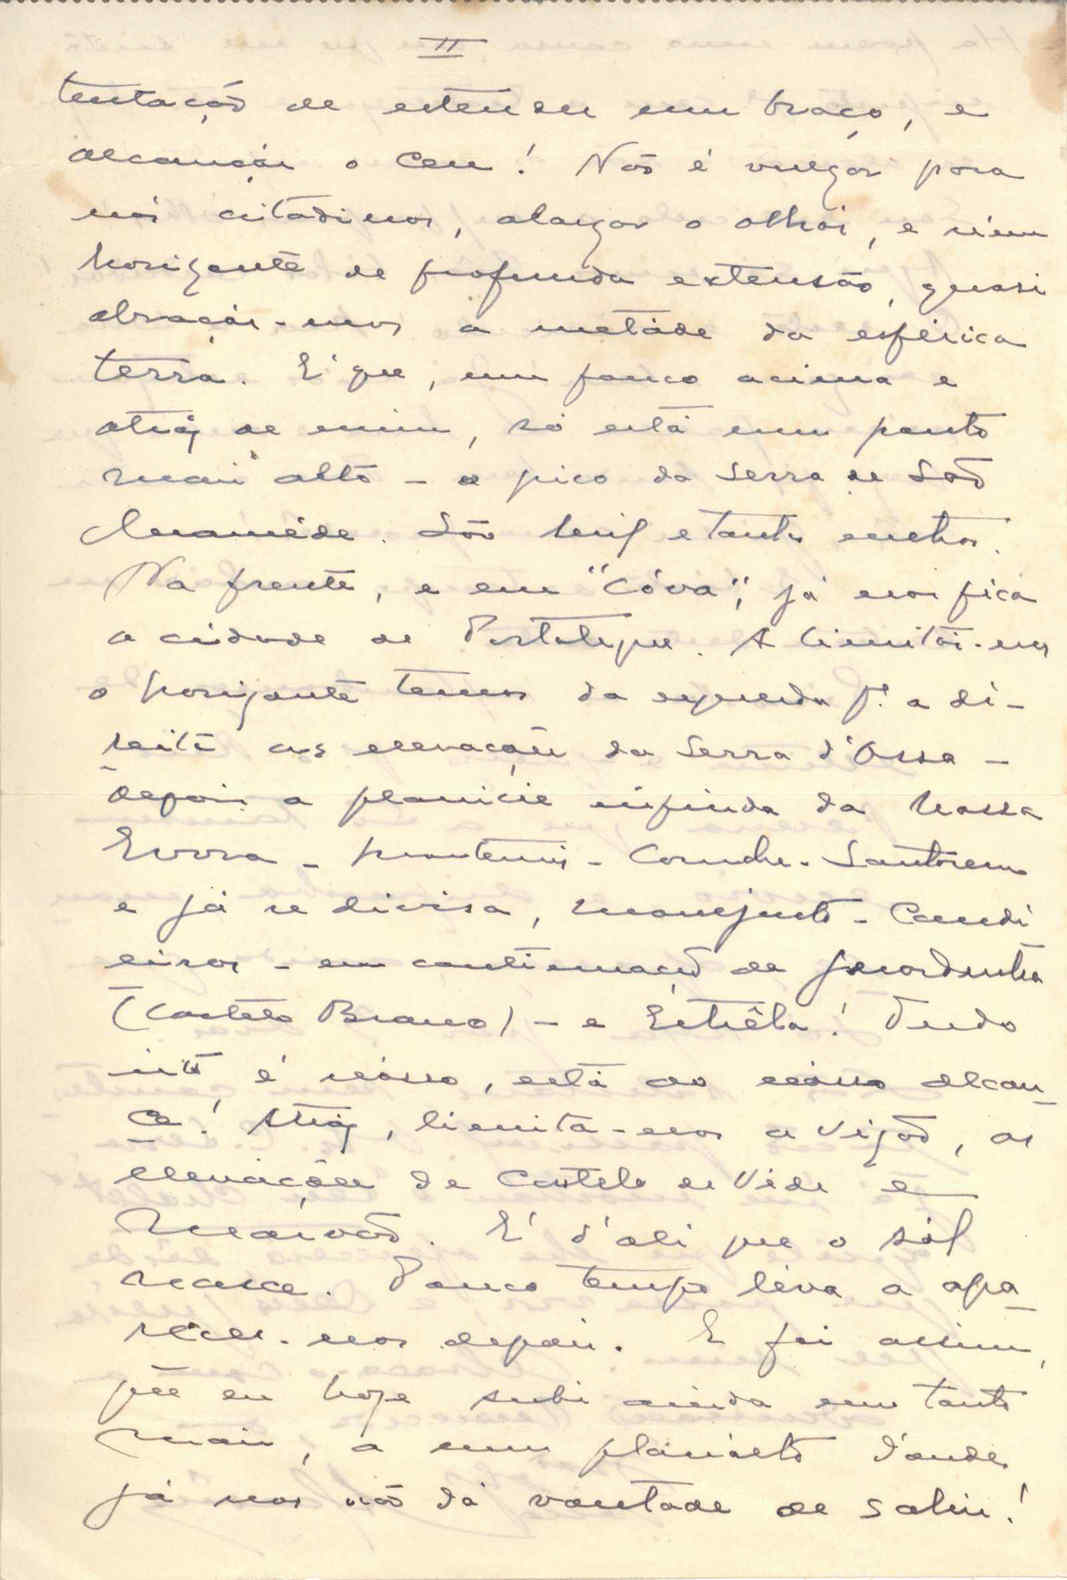 II
tentação de estender um braço, e
alcançar o Ceu! Não é vulgar para
nós citadinos, alargar o olhar, e n'um
horizonte de profunda extensão, quasi
abraçar-mos a metade da esférica
terra. E' que, um pouco acima e
atraz de mim, só está um ponto
mais alto - o pico da Serra de São
Mamede. São mil e tantos metros.
Na frente, e em "Cóva", já nos fica
a cidade de Portalegre. A limitar-nos
o horizonte temos da esquerda pª a di-
reita as elevações da Serra d'Ossa -
depois a planicie infinda da nossa
Evora - Coruche - Santarem
e já se divisa, Monejunto - Candi
eiros - em continuação de Gardunha
(Castelo Branco) - e Estrêla! Tudo
isto é nosso, está ao nosso alcan-
ce! Atraz, limita-nos a visão, as
elevações de Castelo de Vide e
Marvão. E' d'ali que o sól
nasce. Pouco tempo leva a apa-
recer-nos depois. E foi assim,
que eu hoje subi ainda um tanto
mais, a um planalto d'onde
já nos não dá vontade de sahir!